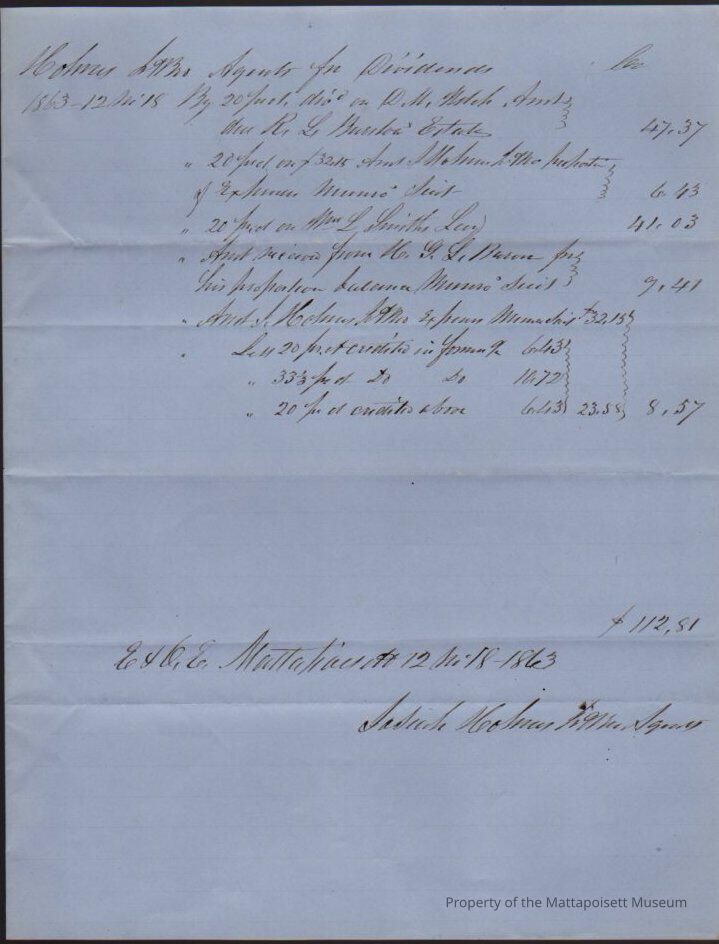 Holmes Jr & Bro Agents for Dividends Cr
1863-12 Mo 18 By 20 pr ct. divd on Amt
due R. L. Barstow Estate 47.37
" 20 pr ct on $32.15 Amt J Holmes Jr & Bro
of Expenses Munro Suit 6.43
" 20 pr ct on Wm L Smiths 41.03
" Amt received from H. G. L. for
his proportion balance Munro Suit 9.41
" Amt J. Holmes Jr & Bro Expenses Munro Suit $32.15
" Less 20 pr ct credited in former 6.43
" 33⅓ pr ct Do Do 10.72
" 20 pr ct credited above 6.43 23.58 8.57
$112.81
E & O. E. Mattapoisett 12 Mo 18-1863
Josiah Holmes Jr & Bro Agents
Property of the Mattapoisett Museum